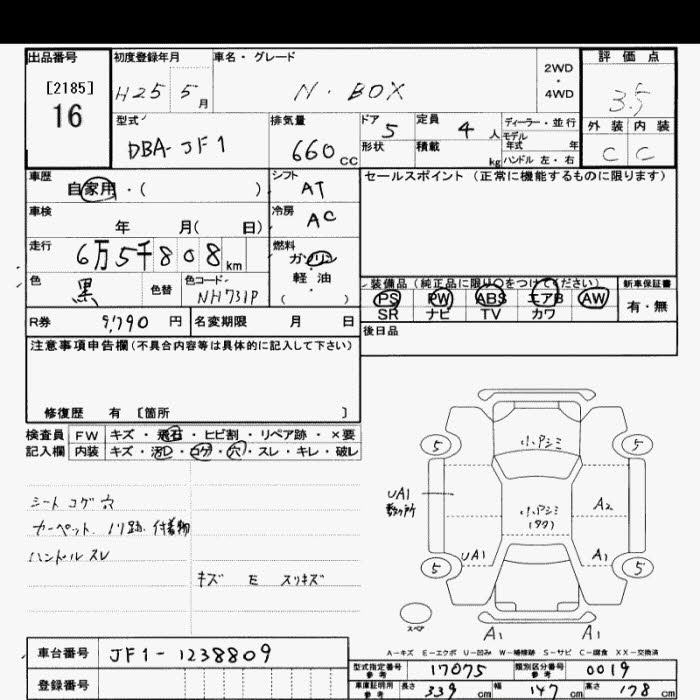 出品番号 初度登録年月 車名・グレード 2WD・4WD 評価点
[2185] 16
H25 5月 N・BOX 3.5
型式 DBA-JF1 排気量 660cc ドア 5 定員 4人 ディーラー・並行
形状 積載 kg モデル年式 年式 ハンドル 左・右
外装 内装
C C
車歴 自家用・( ) シフト AT
セールスポイント(正常に機能するものに限ります)
車検 年 月( 日) 冷房 AC
走行 6万5千808km 燃料 ガソリン 軽油 ( )
色 黒 色替 色コード NH731P
装備品(純正品に限り○をつけてください) 新車保証書
PS PW ABS エアB AW 有・無
SR ナビ TV カワ
R券 9,790円 名変期限 月 日
後日品
注意事項申告欄(不具合内容等は具体的に記入して下さい)
修復歴 有 [箇所 ]
検査員 FW キズ・飛石・ヒビ割・リペア跡・×要
記入欄 内装 キズ・汚レ・コゲ・穴・スレ・キレ・破レ
シート コゲ 穴
カーペット、ノリ跡、付着物
ハンドル スレ
キズ E スリキズ
5 5
小アシミ
UA1
数ヶ所
A2
小アシミ
UA1 A1
5 5
スペア
A1 A1
A-キズ E-エクボ U-凹み W-補修跡 S-サビ C-腐食 XX-交換済
車台番号 JF1-1238809
型式指定番号 参考 17075 類別区分番号 参考 0019
登録番号
車庫証明用 参考 長さ 339cm 幅 147cm 高さ 178cm